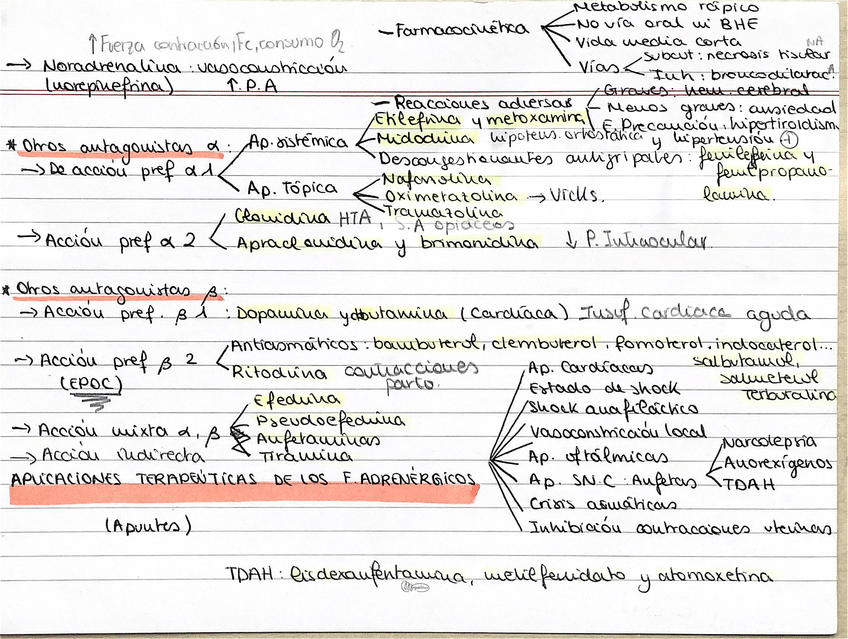 Metabolismo rápido
- Farmacocinética
No vía oral ni BHE
↑ Fuerza contracción, Fc, consumo O2
Vida media corta
NA
→ Noradrenalina : vasoconstricción
Vías
Subcut : necrosis tisular
A
Inh : broncodilatac.
(norepinefrina) ↑ P.A
- Reacciones adversas
Graves : hem. cerebral
Menos graves : ansiedad
E. Precaución : hipertiroidism
* Otros antagonistas α :
Ap. sistémica
Etilefrina y metoxamina
Midodrina hipotens. ortostática y hipertensión +
→ De acción pref α 1
Descongestionantes antigripales : fenilefrina y
fenilpropano-
lamina.
Ap. Tópica
Nafazolina
Oximetazolina → Vicks.
Tramazolina
→ Acción pref α 2
Clonidina HTA, S.A opiáceos
Apraclonidina y brimonidina ↓ P. Intraocular
* Otros antagonistas β :
→ Acción pref. β 1 : Dopamina y dobutamina (Cardíaca) Insuf. cardíaca aguda
→ Acción pref β 2
(EPOC)
Antiasmáticos : bambuterol, clembuterol, fomoterol, indacaterol...
salbutamol,
salmeterol
Terbutalina
Ritodrina contracciones
parto.
→ Acción mixta α, β
Efedrina
Pseudoefedrina
→ Acción indirecta
Anfetaminas
Tiramina
APLICACIONES TERAPEÚTICAS DE LOS F. ADRENÉRGICOS
Ap. Cardíacas
Estado de shock
Shock anafiláctico
Vasoconstricción local
Ap. oftálmicas
Ap. S.N.C : Anfetas
Narcolepsia
Anorexígenos
TDAH
Crisis asmáticas
Inhibición contracciones uterinas
(Apuntes)
TDAH : lisdexanfentamina, metilfenidato y atomoxetina